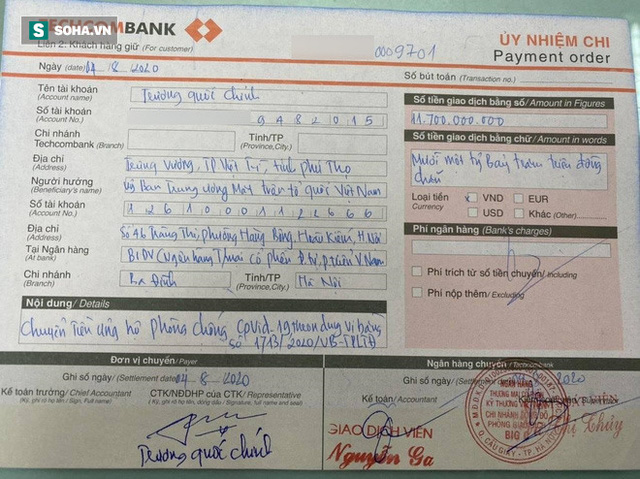 SOHA.VN
TECHCOMBANK
Liên 2: Khách hàng giữ (For customer)
0009701
ỦY NHIỆM CHI
Payment order
Ngày (date) 04 - 8 - 2020
Số bút toán (Transaction no.)
Tên tài khoản
(Account name)
Trương quốc chính
Số tài khoản
(Account No.)
9482015
Chi nhánh
Techcombank (Branch)
Tỉnh/TP
(Province,City)
Địa chỉ
(Address)
Trưng Vương, TP Việt Trì, tỉnh Phú Thọ
Người hưởng
(Beneficiary's name)
Uỷ Ban Trung ương Mặt trận tổ quốc Việt Nam
Số tài khoản
(Account No.)
12610001122666
Địa chỉ
(Address)
Số 46 Tràng Thi, phường Hàng Bông, Hoàn Kiếm, H Nội
Tại Ngân hàng
(At bank)
BIDV (Ngân hàng
V Nam
Chi nhánh
(Branch)
Ba Đình
Tỉnh/TP
(Province,City)
Hà Nội
Số tiền giao dịch bằng số/ Amount in Figures
11.700.000.000
Số tiền giao dịch bằng chữ/ Amount in words
Mười một tỷ bảy trăm triệu đồng
chẵn
Loại tiền
Currency
x VND
EUR
USD
Khác (Other)
Phí ngân hàng (Bank's charges)
Phí trích từ số tiền chuyển/ Including
Phí nộp thêm/ Excluding
Nội dung/ Details
Chuyển tiền ủng hộ phòng chống Covid-19 theo
số 1713/2020/VB-TPLĐ
Đơn vị chuyển/ Payer
Ngân hàng chuyển/ Techcombank
Ghi sổ ngày/ (Settlement date) 04 - 8 - 2020
Ghi sổ ngày/ (Settlement date) 04-8-2020
Kế toán trưởng/ Chief Accountant
(Ký, ghi rõ họ tên/ Sign, Full name)
CTK/NĐDHP của CTK/ Representative
Kế toán/ Accountant
Trương quốc chính
GIAO DỊCH VIÊN
Nguyễn Ga
NGÂN HÀNG
KỸ THƯƠNG VIỆT NAM
BIG
Q. CẦU GIẤY - TP. HÀ NỘI
Thị Thủy